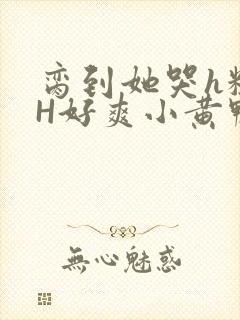 脔到她哭h粗
H好爽小黄鸭
無心魅惑